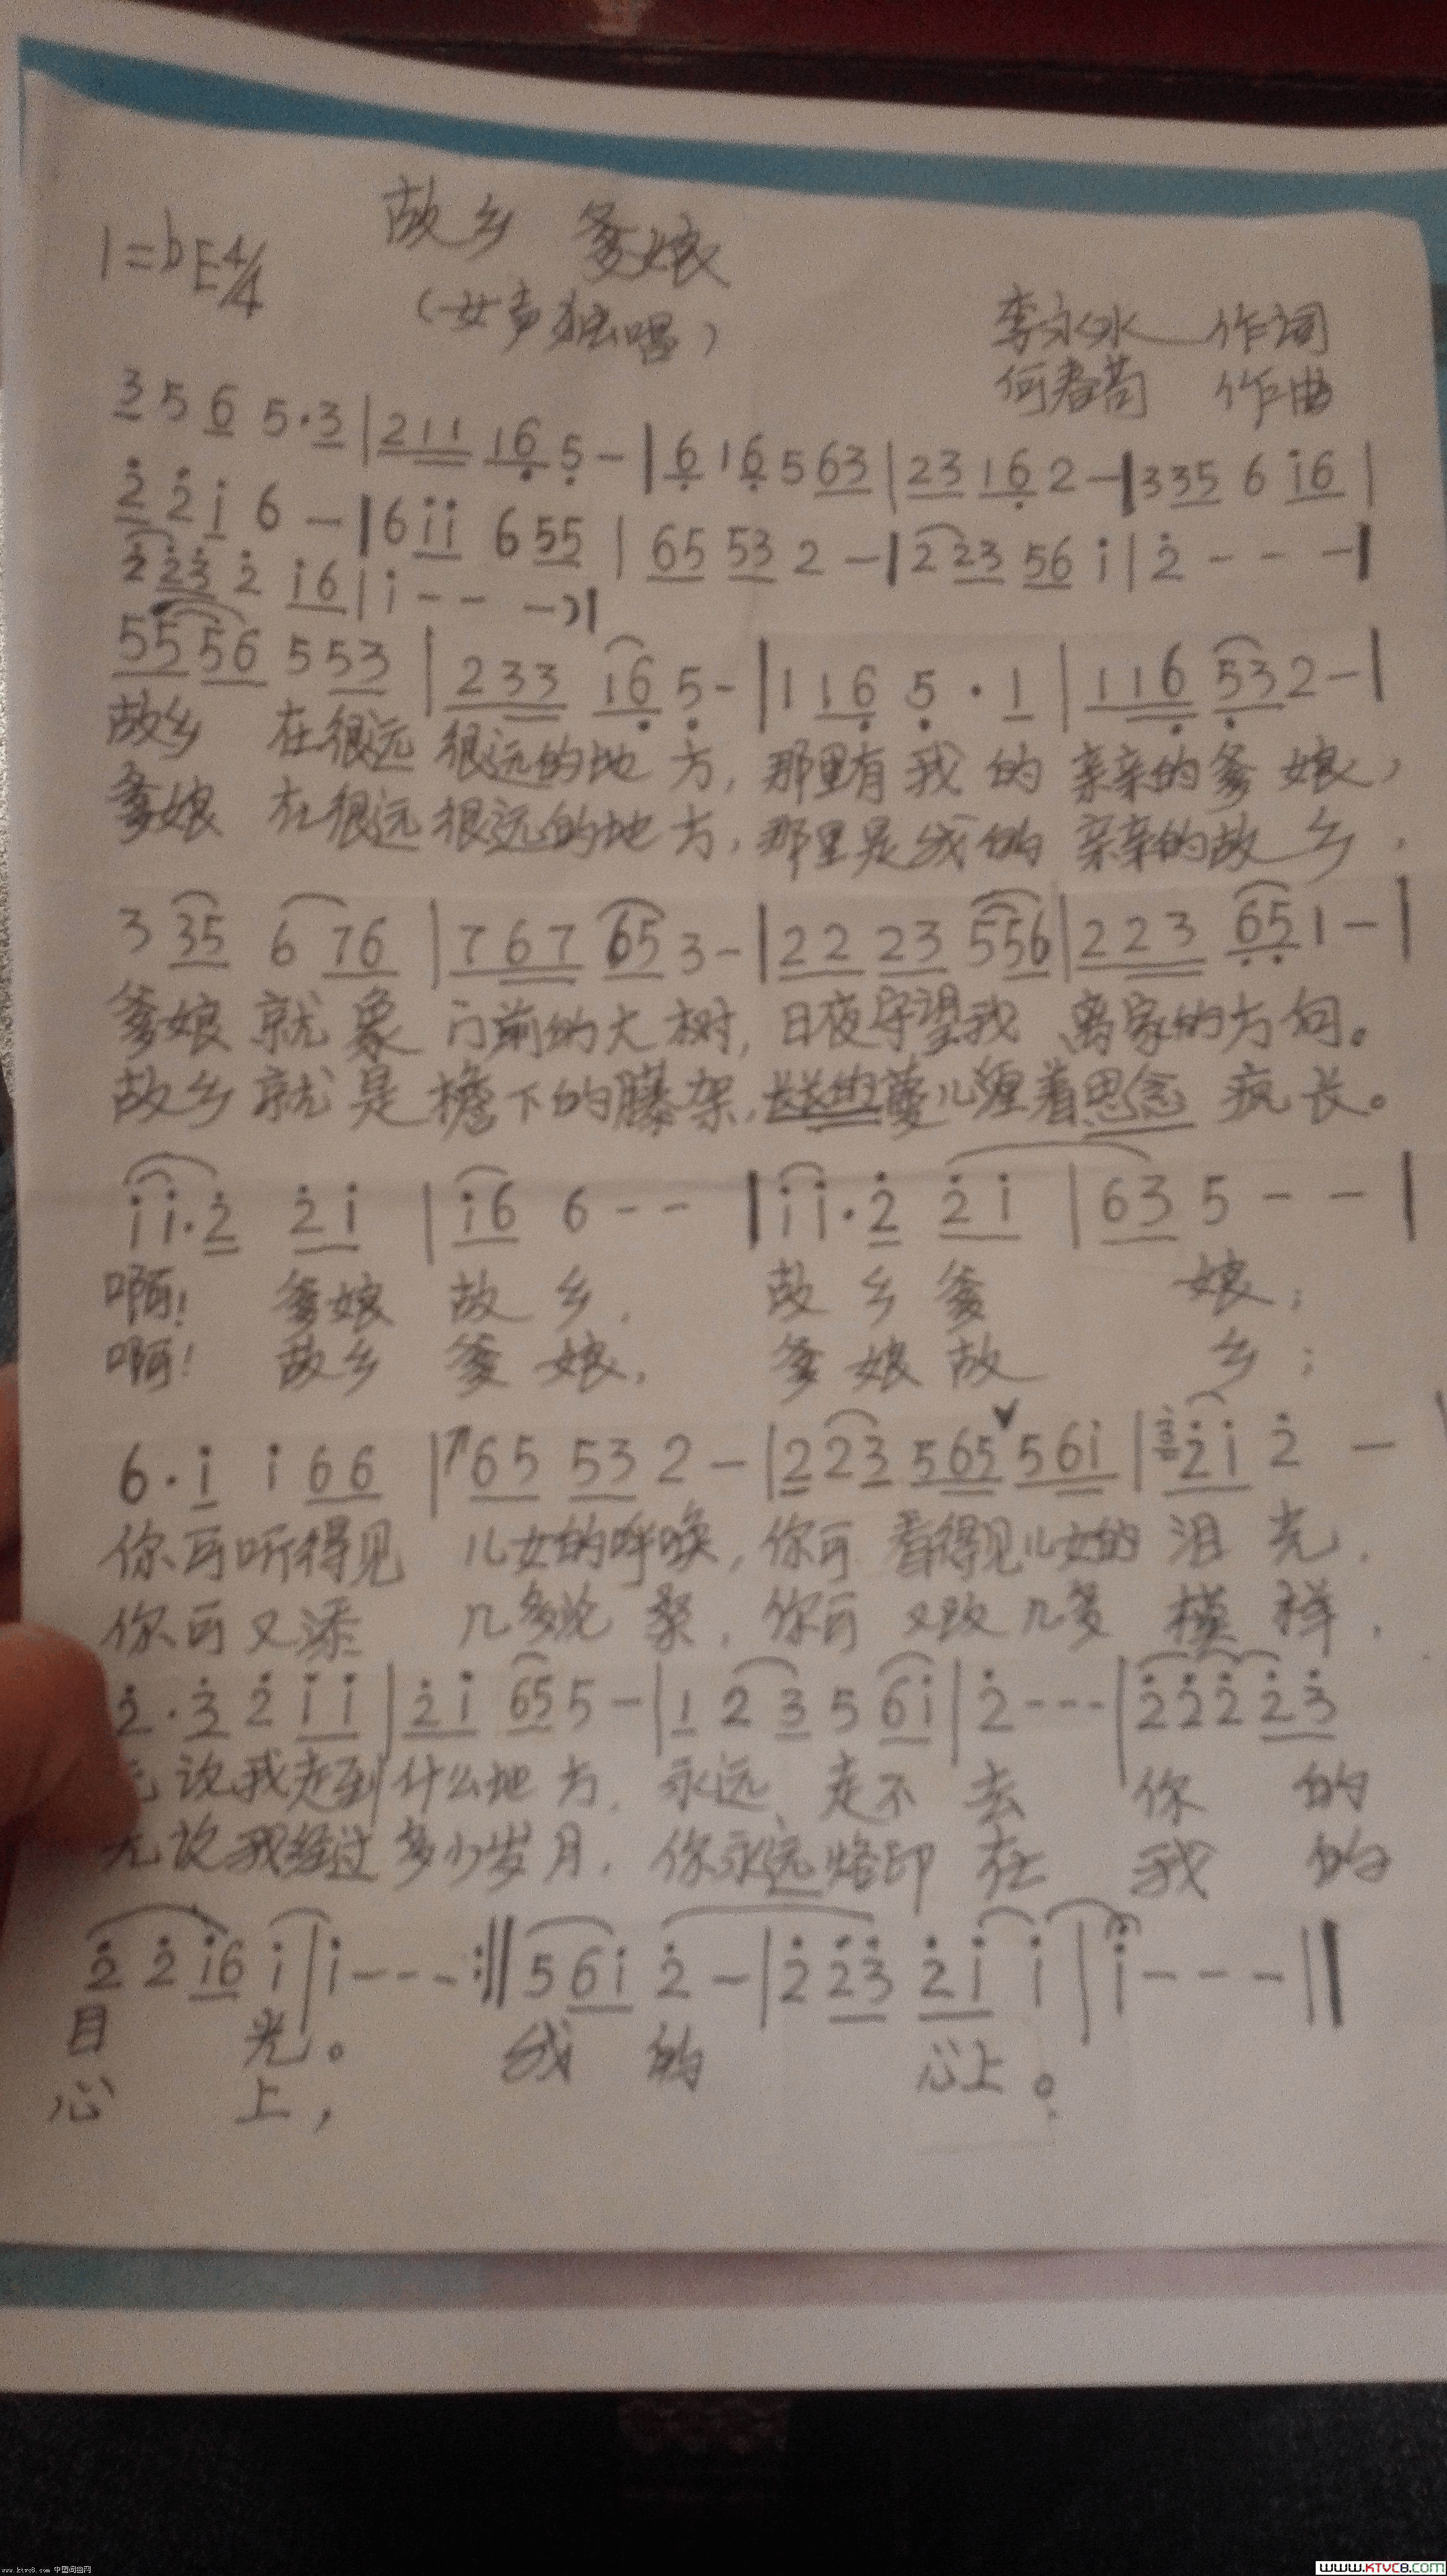 故乡 爹娘
1=bE4/4
(女声独唱)
李永水 作词
何春苟 作曲
3 5 6 5·3|211 16 5 -|6 16 5 63|23 16 2 -|335 6 i6|
2̇ 2̇ i 6 -|6 ii 6 55|65 53 2 -|2 23 56 i|2̇ - - -|
2̇ 2̇3̇ 2̇ i6|i - - -)|
55 56 5 53|233 16 5 -|1 16 5 · 1|116 53 2 -|
故乡 在很远 很远的地方,那里有我的亲亲的爹娘,
爹娘 在很远 很远的地方,那里是我的亲亲的故乡.
3 35 6 76|767 65 3 -|22 23 556|223 65 1 -|
爹娘就象 门前的大树,日夜守望我 离家的方向。
故乡就是檐下的藤架,蔓儿缠着思念 疯长。
ii·2̇ 2̇i|i6 6 - -|ii·2̇ 2̇i|63 5 - -|
啊! 爹娘 故乡. 故乡爹 娘;
啊! 故乡 爹娘. 爹娘故 乡;
6·i i 66|65 53 2 -|2 23 565 56i|3̇ 2̇i 2̇ -
你可听得见 儿女的呼唤,你可 看得见儿女的泪光.
你可又添 几多沧桑.你可 又改几多 模样.
2̇·3̇ 2̇ ii|2̇i 65 5 -|1 2 3 5 6i|2̇ - - -|2̇ 2̇ 2̇ 2̇3̇
说我走到什么地方.永远 走不 去 你 的
无说我经过多少岁月.你永远烙印 在 我 的
2̇ 2̇ i6 i|i - - - :‖ 5 6i 2̇ -|2̇ 2̇3̇ 2̇i i|i - - -‖
目 光。 我 的 心上。
心 上,
www.ktvc8.com 中国词曲网
WWW.KTVC8.COM